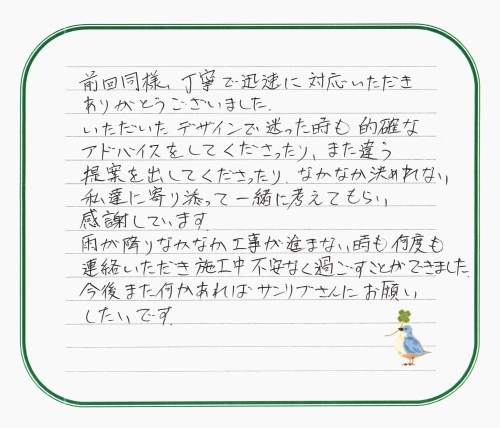 前回同様、丁寧で迅速に対応いただき
ありがとうございました.
いただいたデザインで迷った時も的確な
アドバイスをしてくださったり、また違う
提案を出してくださったり、なかなか決めれない
私達に寄り添って一緒に考えてもらい
感謝しています.
雨が降りなかなか工事が進まない時も何度も
連絡いただき施工中不安なく過ごすことができました.
今後また何かあればサンリブさんにお願い
したいです.